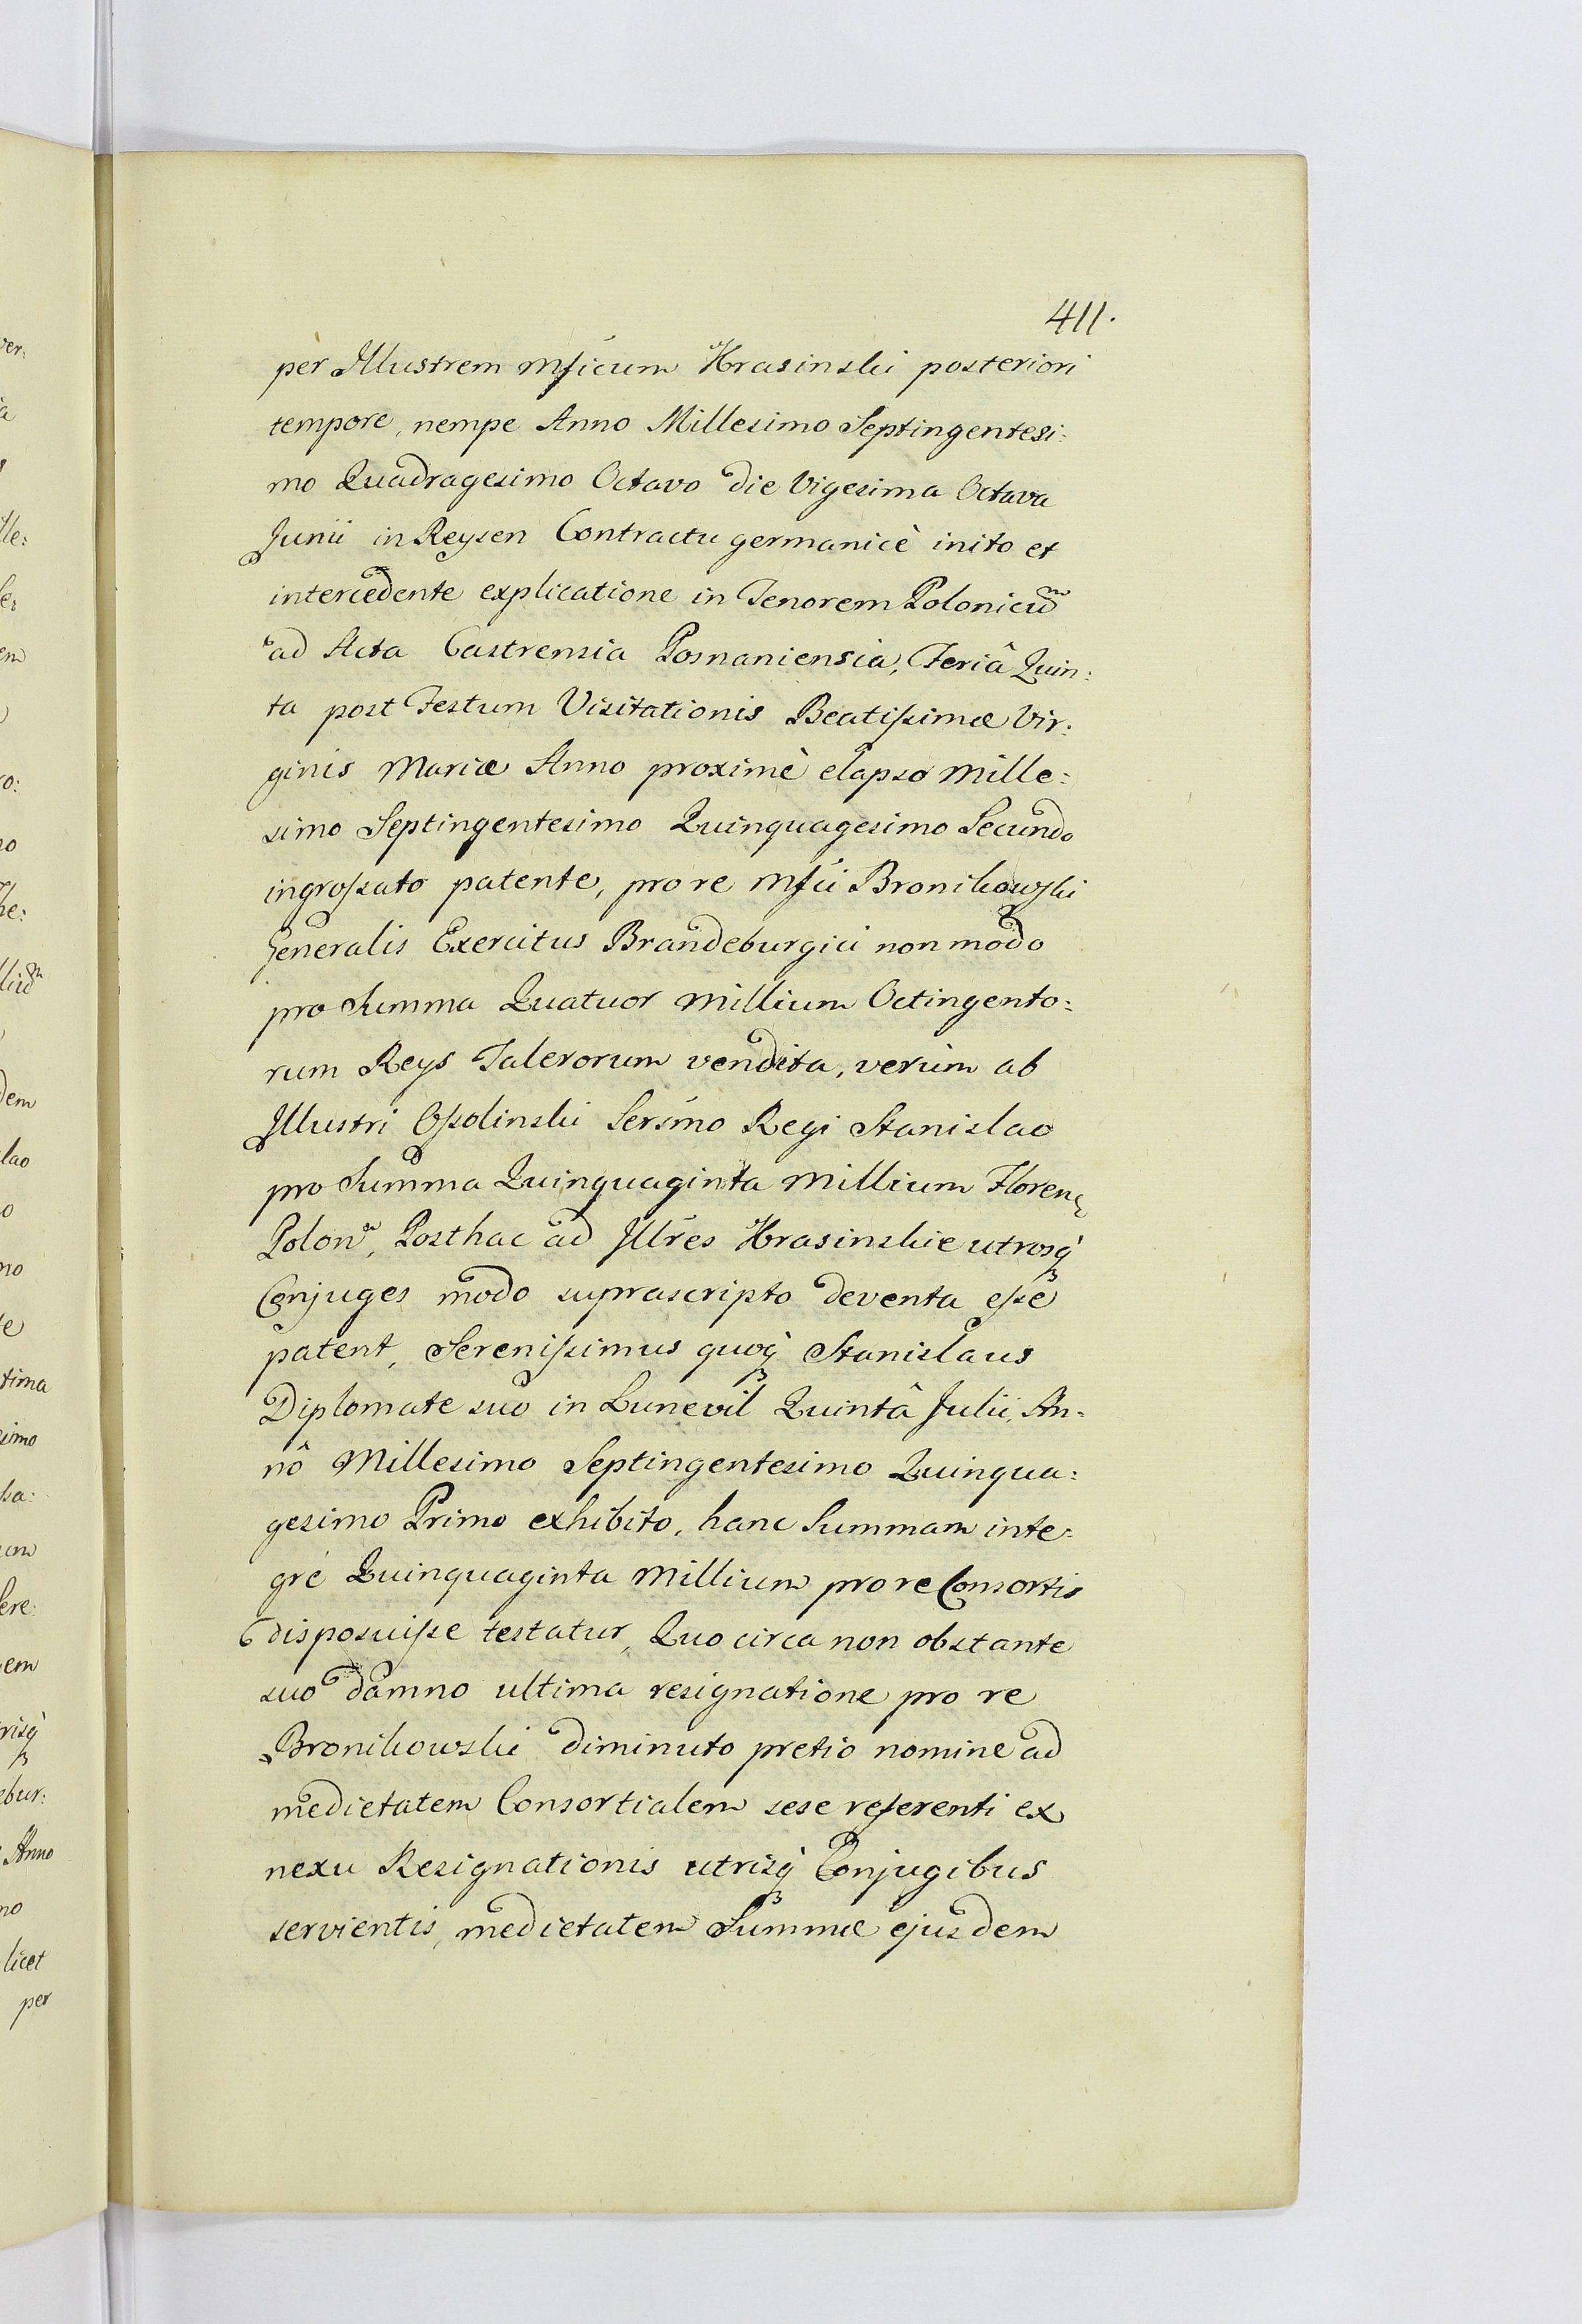 411.
per Illustrem Mficum Krasinski posteriori
tempore, nempe Anno Millesimo Septingentesi:
mo Quadragesimo Octavo die Vigesima Octava
Junii in Reysen Contractu germanicè inito et
intercedente explicatione in Tenorem Polonicum
ad Acta Castrensia Posnaniensia, Feriâ Quin:
ta post Festum Visitationis Beatissimæ Vir:
ginis Mariæ Anno proximè elapso Mille:
simo Septingentesimo Quinquagesimo Secundo
ingrossato patente, pro re Mfici Bronikowski
Generalis Exercitus Brandeburgici non modo
pro Summa Quatuor Millium Octingento:
rum Reys Talerorum vendita, verùm ab
Illustri Ossolinski Sersmo Regi Stanislao
pro Summa Quinquaginta Millium Floren
Polon. Posthac ad Illres Krasinskie utrosq
Conjuges modo suprascripto deventa esse
patent, Serenissimus quoq Stanislaus
Diplomate suo in Lunevil Quintâ Julii, An:
nô Millesimo Septingentesimo Quinqua:
gesimo Primo exhibito, hanc Summam inte:
gré Quinquaginta Millium pro re Consortis
disposuisse testatur, Quo circa non obstante
suo damno ultima resignatione pro re
Bronikowski diminuto pretio nomine ad
medietatem Consortialem sese referenti ex
nexu Resignationis utrisq Conjugibus
servientis, medietatem Summæ ejusdem